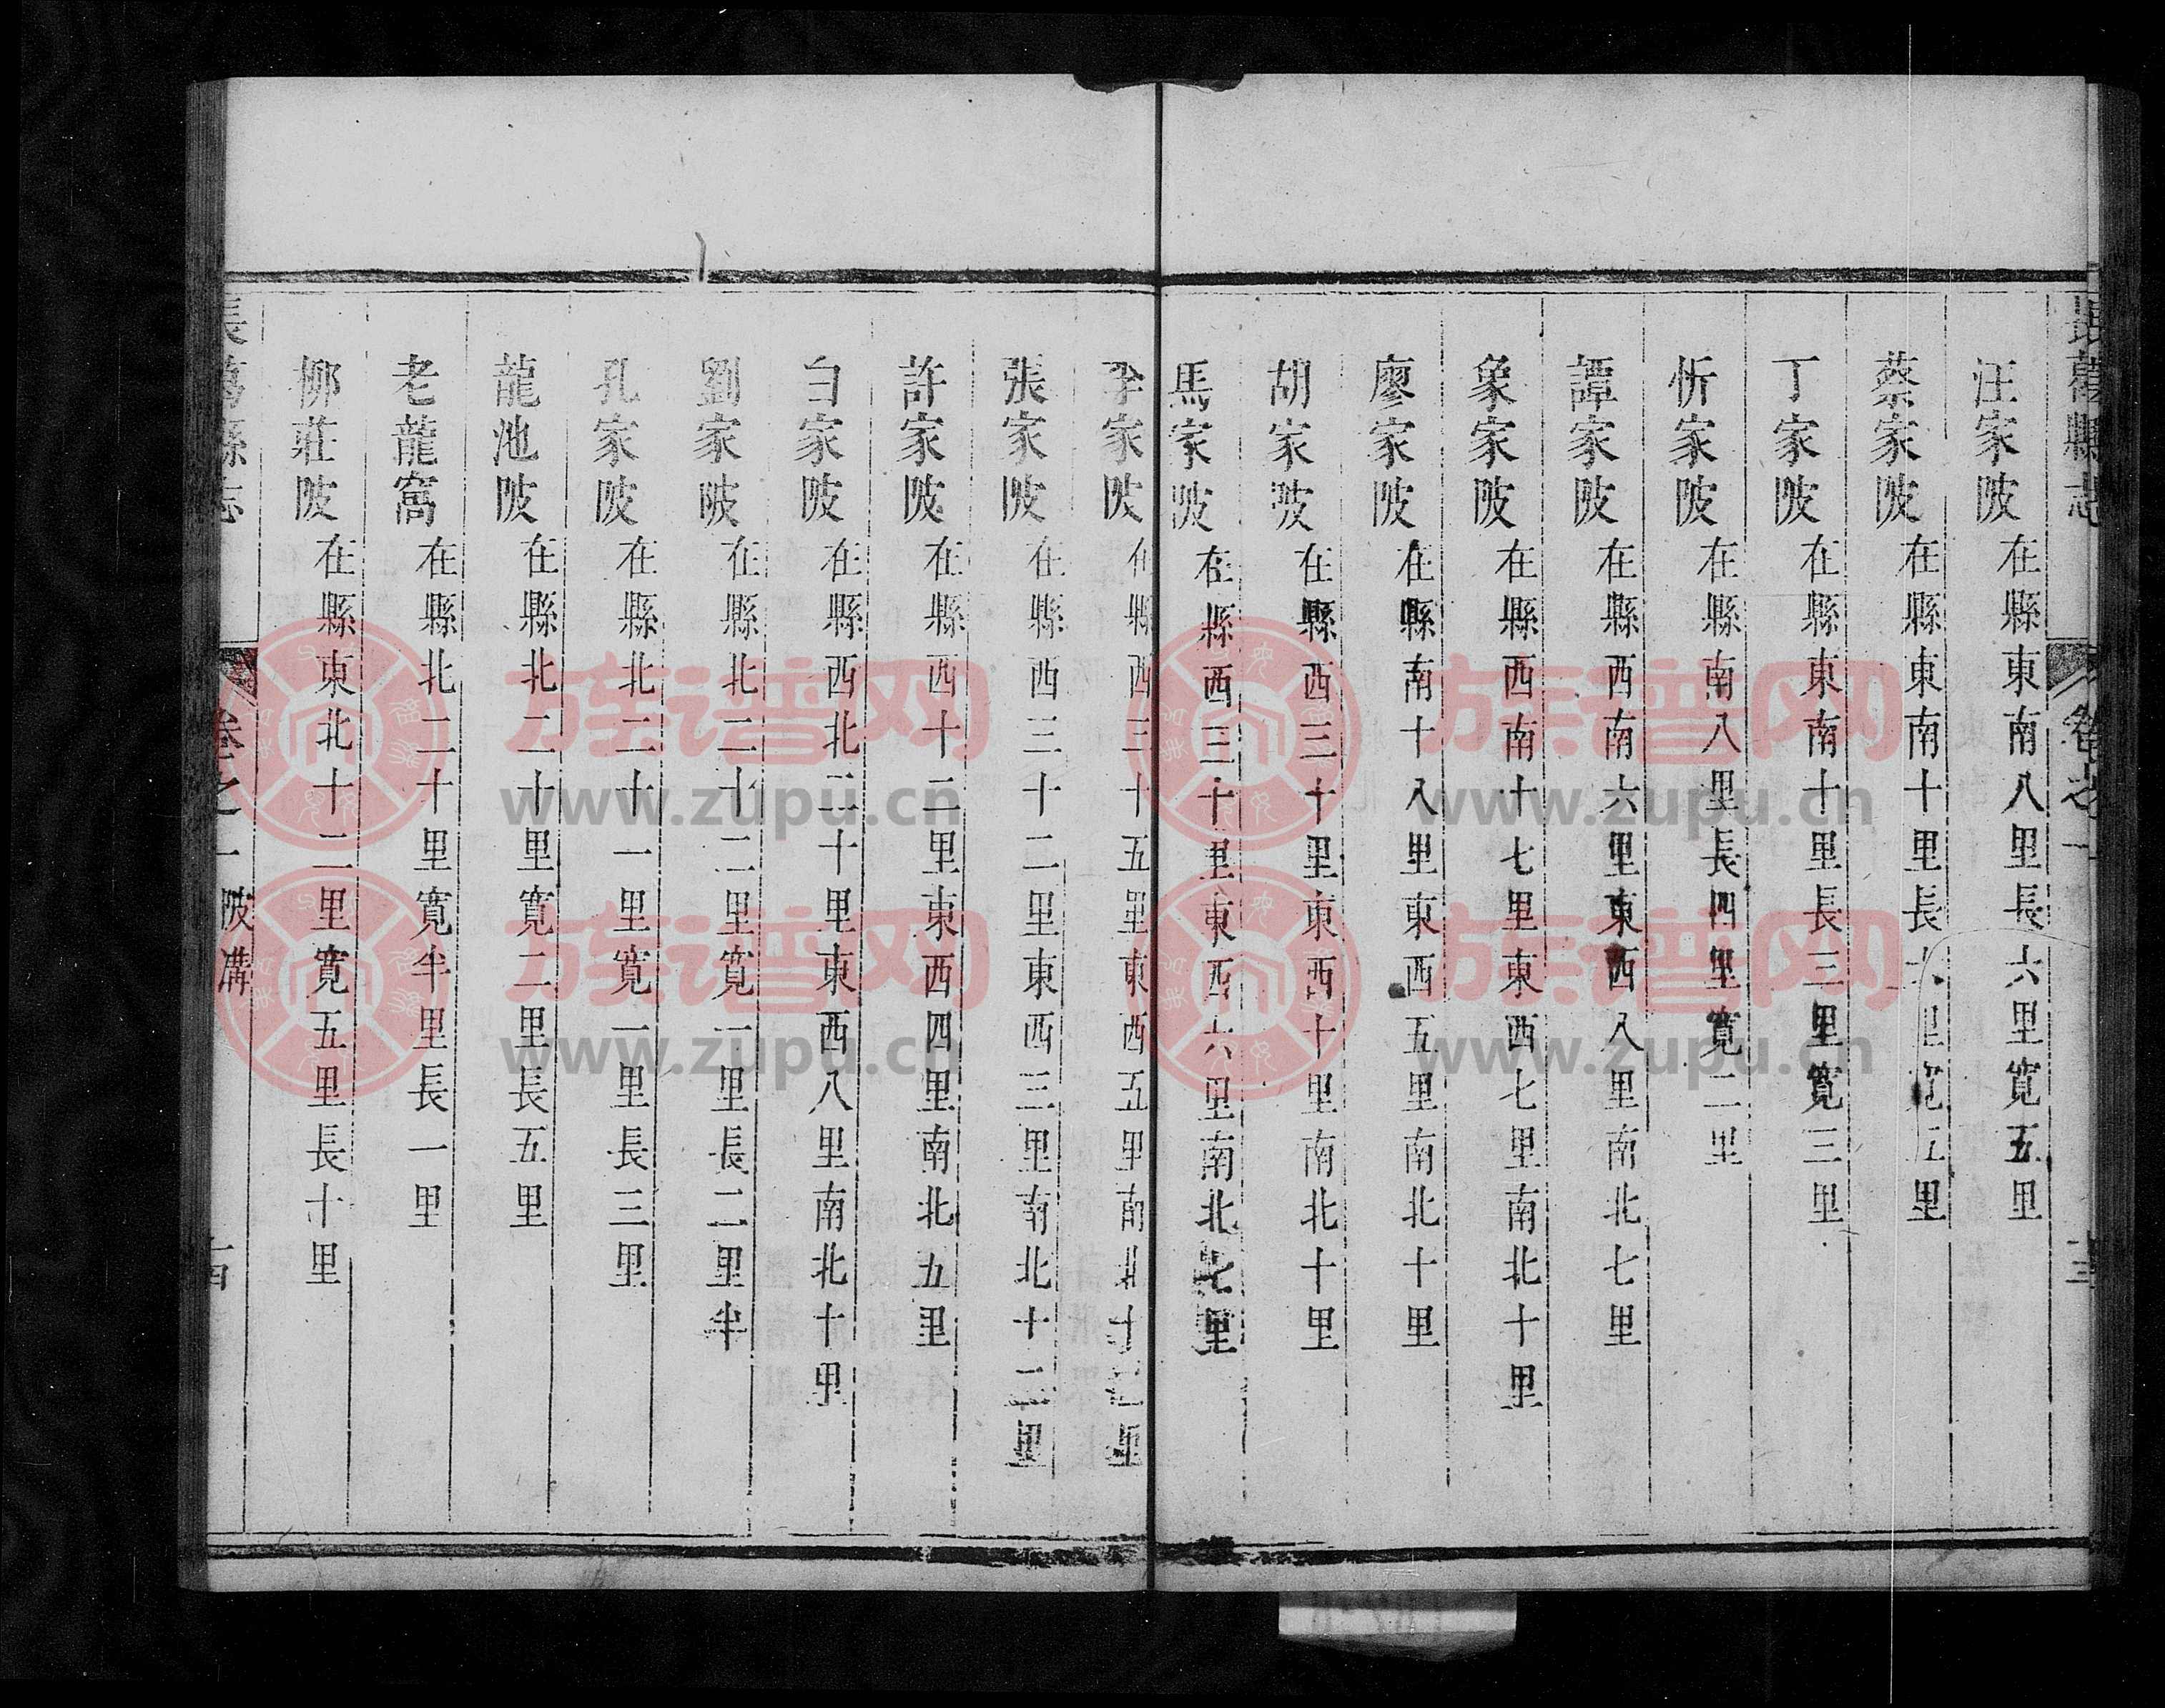 長葛縣志
卷之一
十三
汪家陂在縣東南八里長六里寛五里
蔡家陂在縣東南十里長六里寛五里
丁家陂在縣東南十里長三里寛三里
忻家陂在縣南八里長四里寛二里
譚家陂在縣西南六里東西八里南北七里
象家陂在縣西南十七里東西七里南北十里
廖家陂在縣南十八里東西五里南北十里
胡家陂在縣西三十里東西十里南北十里
馬家陂在縣西三十里東西六里南北七里
李家陂在縣西三十五里東西五里南北十二里
張家陂在縣西三十二里東西三里南北十二里
許家陂在縣西十二里東西四里南北五里
白家陂在縣西北二十里東西八里南北十里
劉家陂在縣北二十二里寛一里長二里半
孔家陂在縣北二十一里寛一里長三里
龍池陂在縣北二十里寛二里長五里
老龍窩在縣北二十里寛半里長一里
柳莊陂在縣東北十二里寛五里長十里
長葛縣志
卷之一 陂溝
十四
族谱网
www.zupu.cn
族谱网
www.zupu.cn
族谱网
www.zupu.cn
族谱网
www.zupu.cn